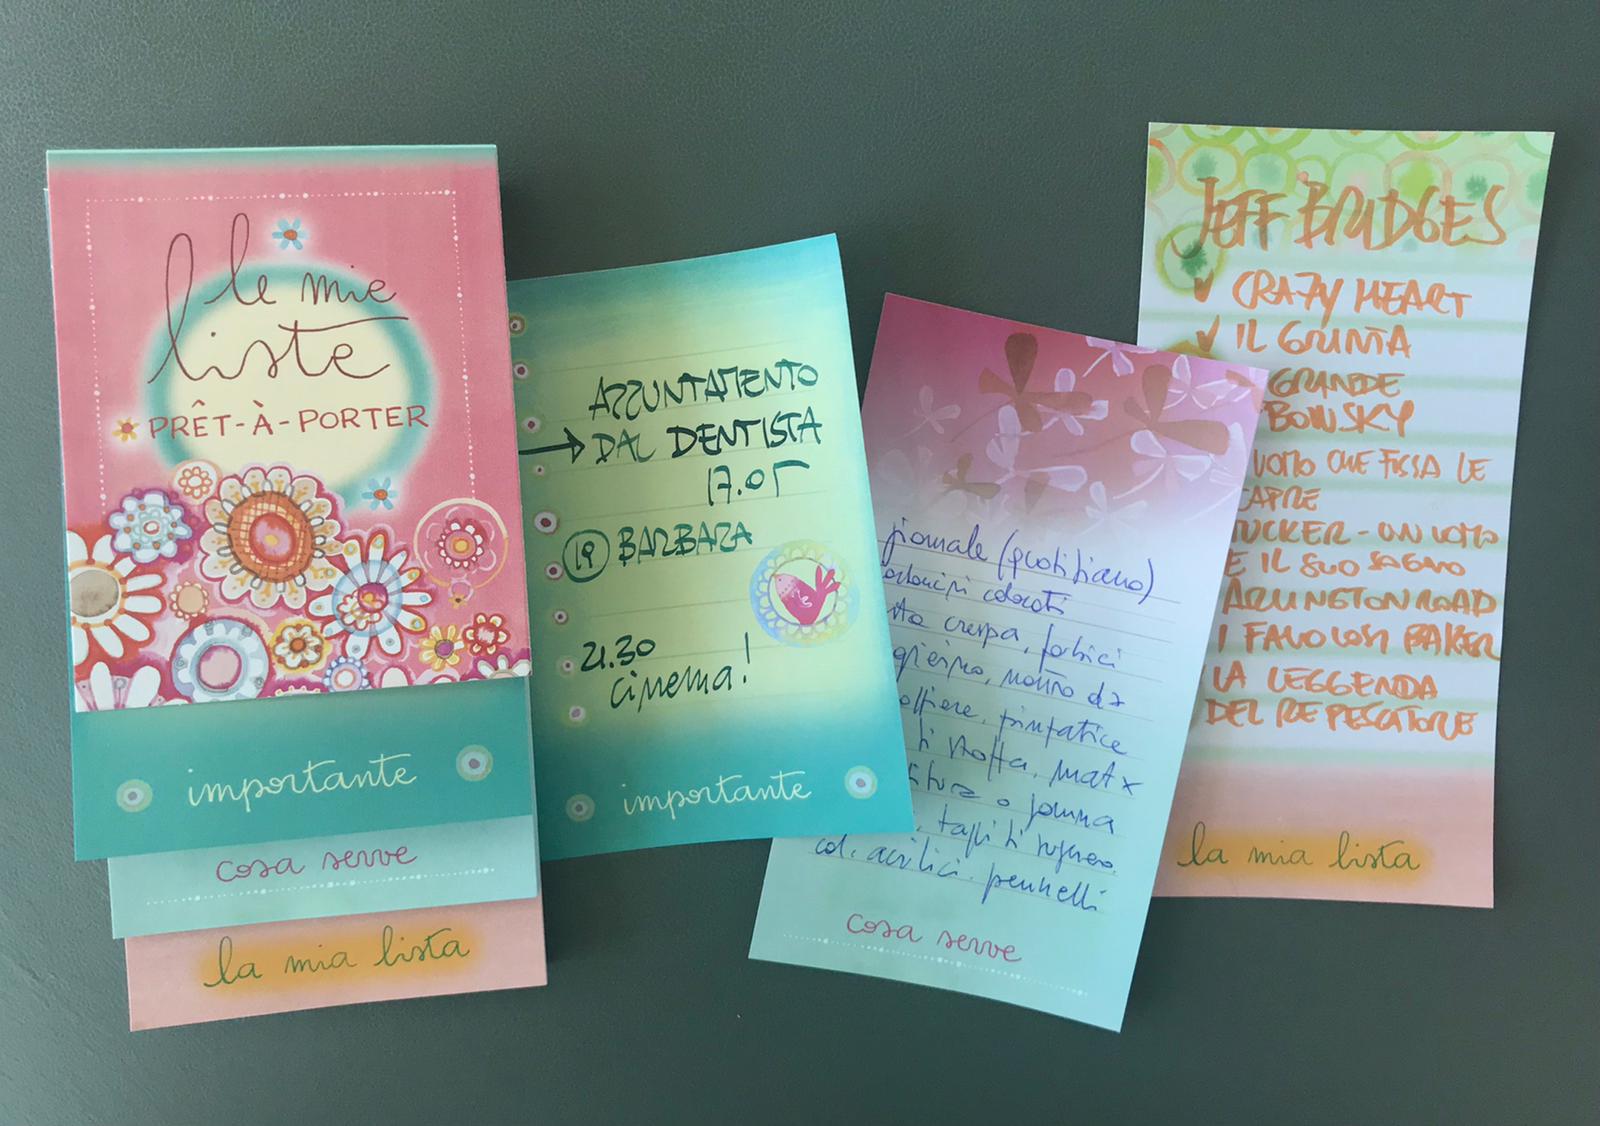 le mie
liste
PRÊT-À-PORTER
importante
cosa serve
la mia lista
APPUNTAMENTO
DAL DENTISTA
17.05
19 BARBARA
21.30
cinema!
importante
giornale (quotidiano)
colorati
crespa, forbici
nastro da
pinzatrice
di stoffa, mat x
o gomma
tappi di sughero
col. acrilici. pennelli
cosa serve
JEFF BRIDGES
✓ CRAZY HEART
✓ IL GRINTA
GRANDE
BOWSKY
UOMO CHE FISSA LE
CAPRE
TUCKER - UN UOMO
E IL SUO SOGNO
ARLINGTON ROAD
I FAVOLOSI BAKER
LA LEGGENDA
DEL RE PESCATORE
la mia lista